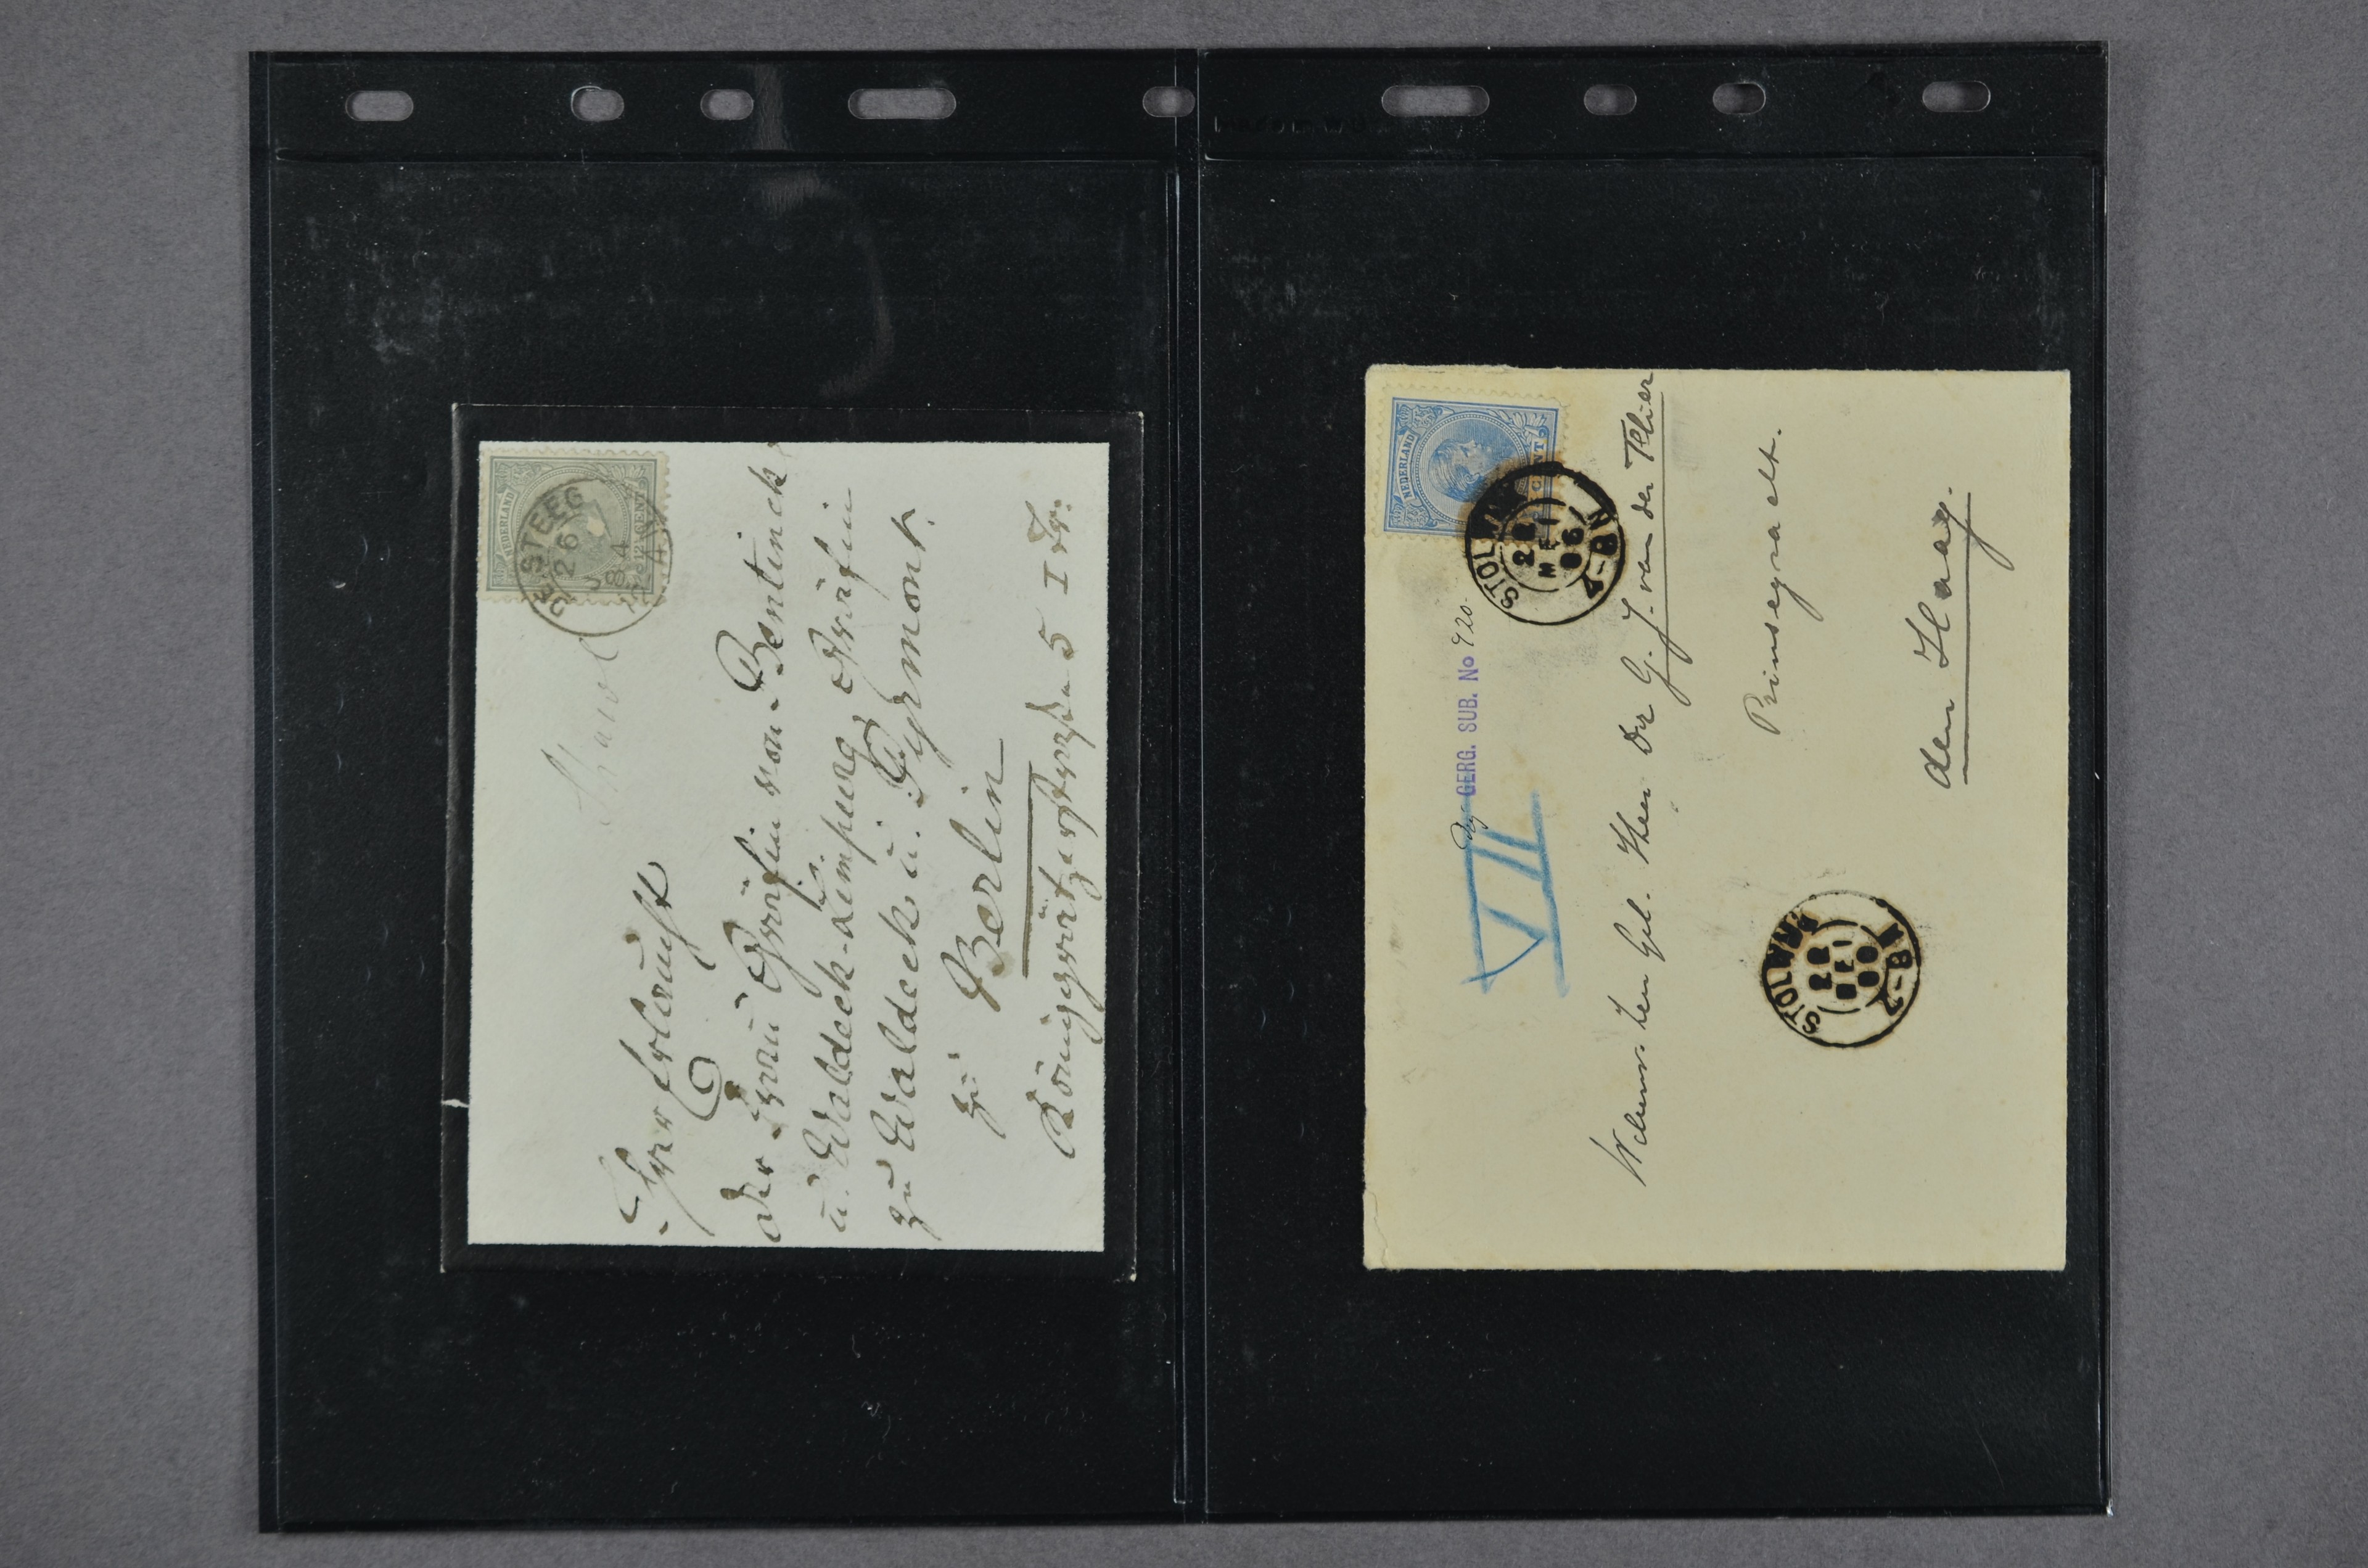 NEDERLAND
12½ CENT
DE STEEG
26
4
Ihrer Erlaucht
der Frau Gräfin von Bentinck
u. Waldeck-Limpurg, Gräfin
zu Waldeck u. Pyrmont.
zu Berlin
Königgrätzerstraße 5 I Tr:
NEDERLAND
CENT
STOLWIJK
28
MEI
4-8N
GERG. SUB. No 920.
VII
G. J. van der Flier
Prinsegracht.
den Haag.
STOLWIJK
4-8N